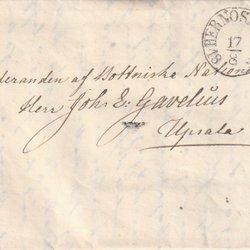 BYHERNÖS
17
8
deranden af Bottniska Nationen
Herr Joh E. Gavelius
Upsala